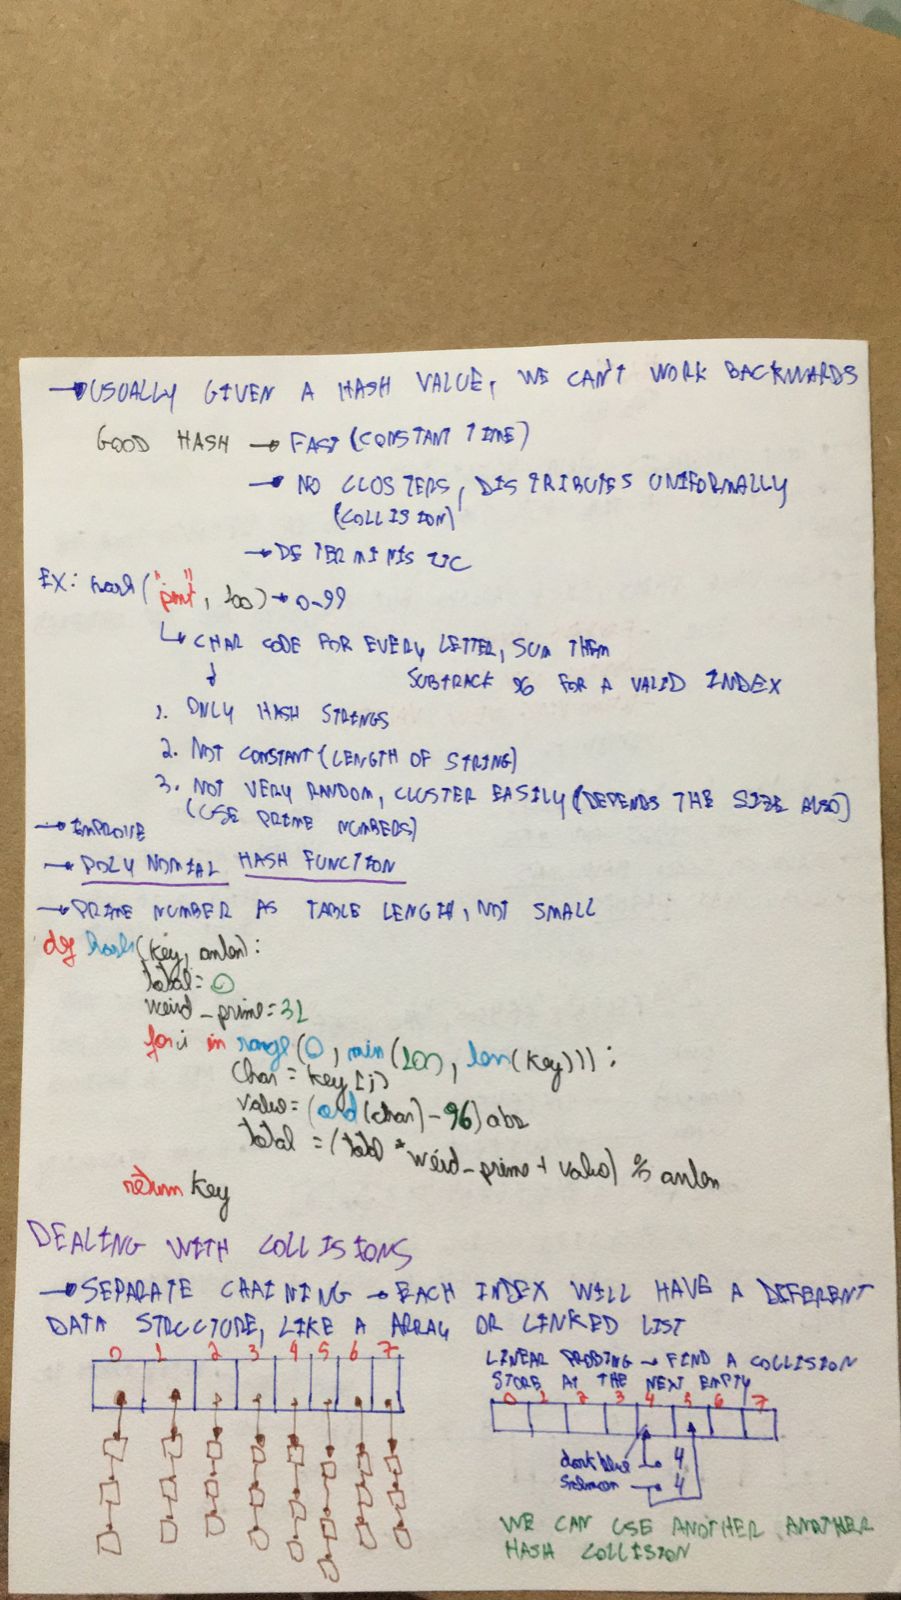 → USUALLY GIVEN A HASH VALUE, WE CAN'T WORK BACKWARDS
GOOD HASH → FAST (CONSTANT TIME)
→ NO CLUSTERS, DISTRIBUTES UNIFORMALLY
(COLLISION)
→ DETERMINISTIC
EX: hash("pink", 100) → 0-99
↳ CHAR CODE FOR EVERY LETTER, SUM THEM
↓ SUBTRACK 96 FOR A VALID INDEX
1. ONLY HASH STRINGS
2. NOT CONSTANT (LENGTH OF STRING)
3. NOT VERY RANDOM, CLUSTER EASILY (DEPENDS THE SIZE ALSO)
(USE PRIME NUMBERS)
→ IMPROVE
→ POLYNOMIAL HASH FUNCTION
→ PRIME NUMBER AS TABLE LENGTH, NOT SMALL
def hash(key, arrlen):
total = 0
weird_prime = 31
for i in range(0, min(100, len(key))):
char = key[i]
value = (ord(char) - 96) abs
total = (total * weird_prime + value) % arrlen
return key
DEALING WITH COLLISIONS
→ SEPARATE CHAINING → EACH INDEX WILL HAVE A DIFERENT
DATA STRUCTURE, LIKE A ARRAY OR LINKED LIST
0 1 2 3 4 5 6 7
LINEAR PROBING → FIND A COLLISION
STORE AT THE NEXT EMPTY
0 1 2 3 4 5 6 7
dark blue → 4
salmon → 4
WE CAN USE ANOTHER ANOTHER
HASH COLLISION